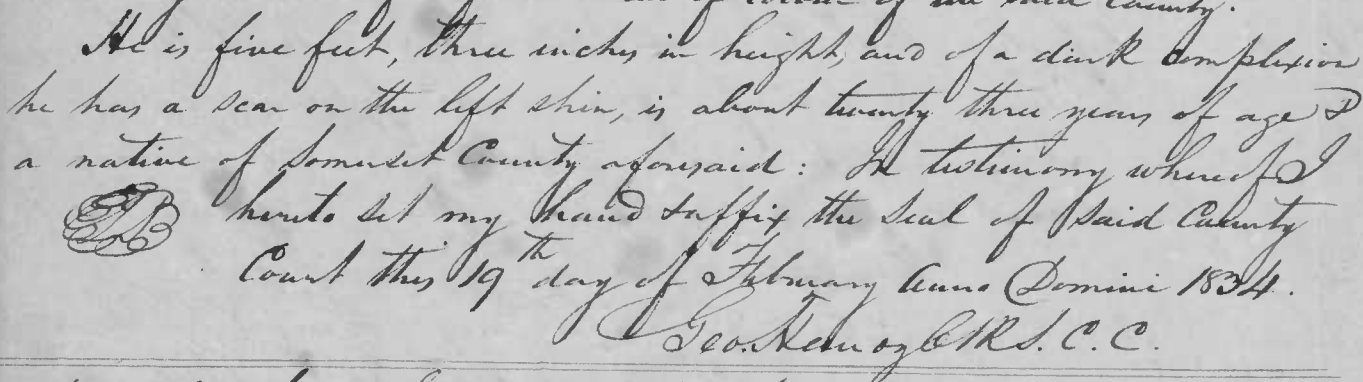 of the said County.
He is five feet, three inches in height, and of a dark Complexion
he has a scar on the left shin, is about twenty three years of age &
a native of Somerset County aforesaid: In testimony whereof I
hereto set my hand & affix the Seal of Said County
Court this 19th day of February Anno Domini 1834.
Geo. Handy Clk S. C. C.